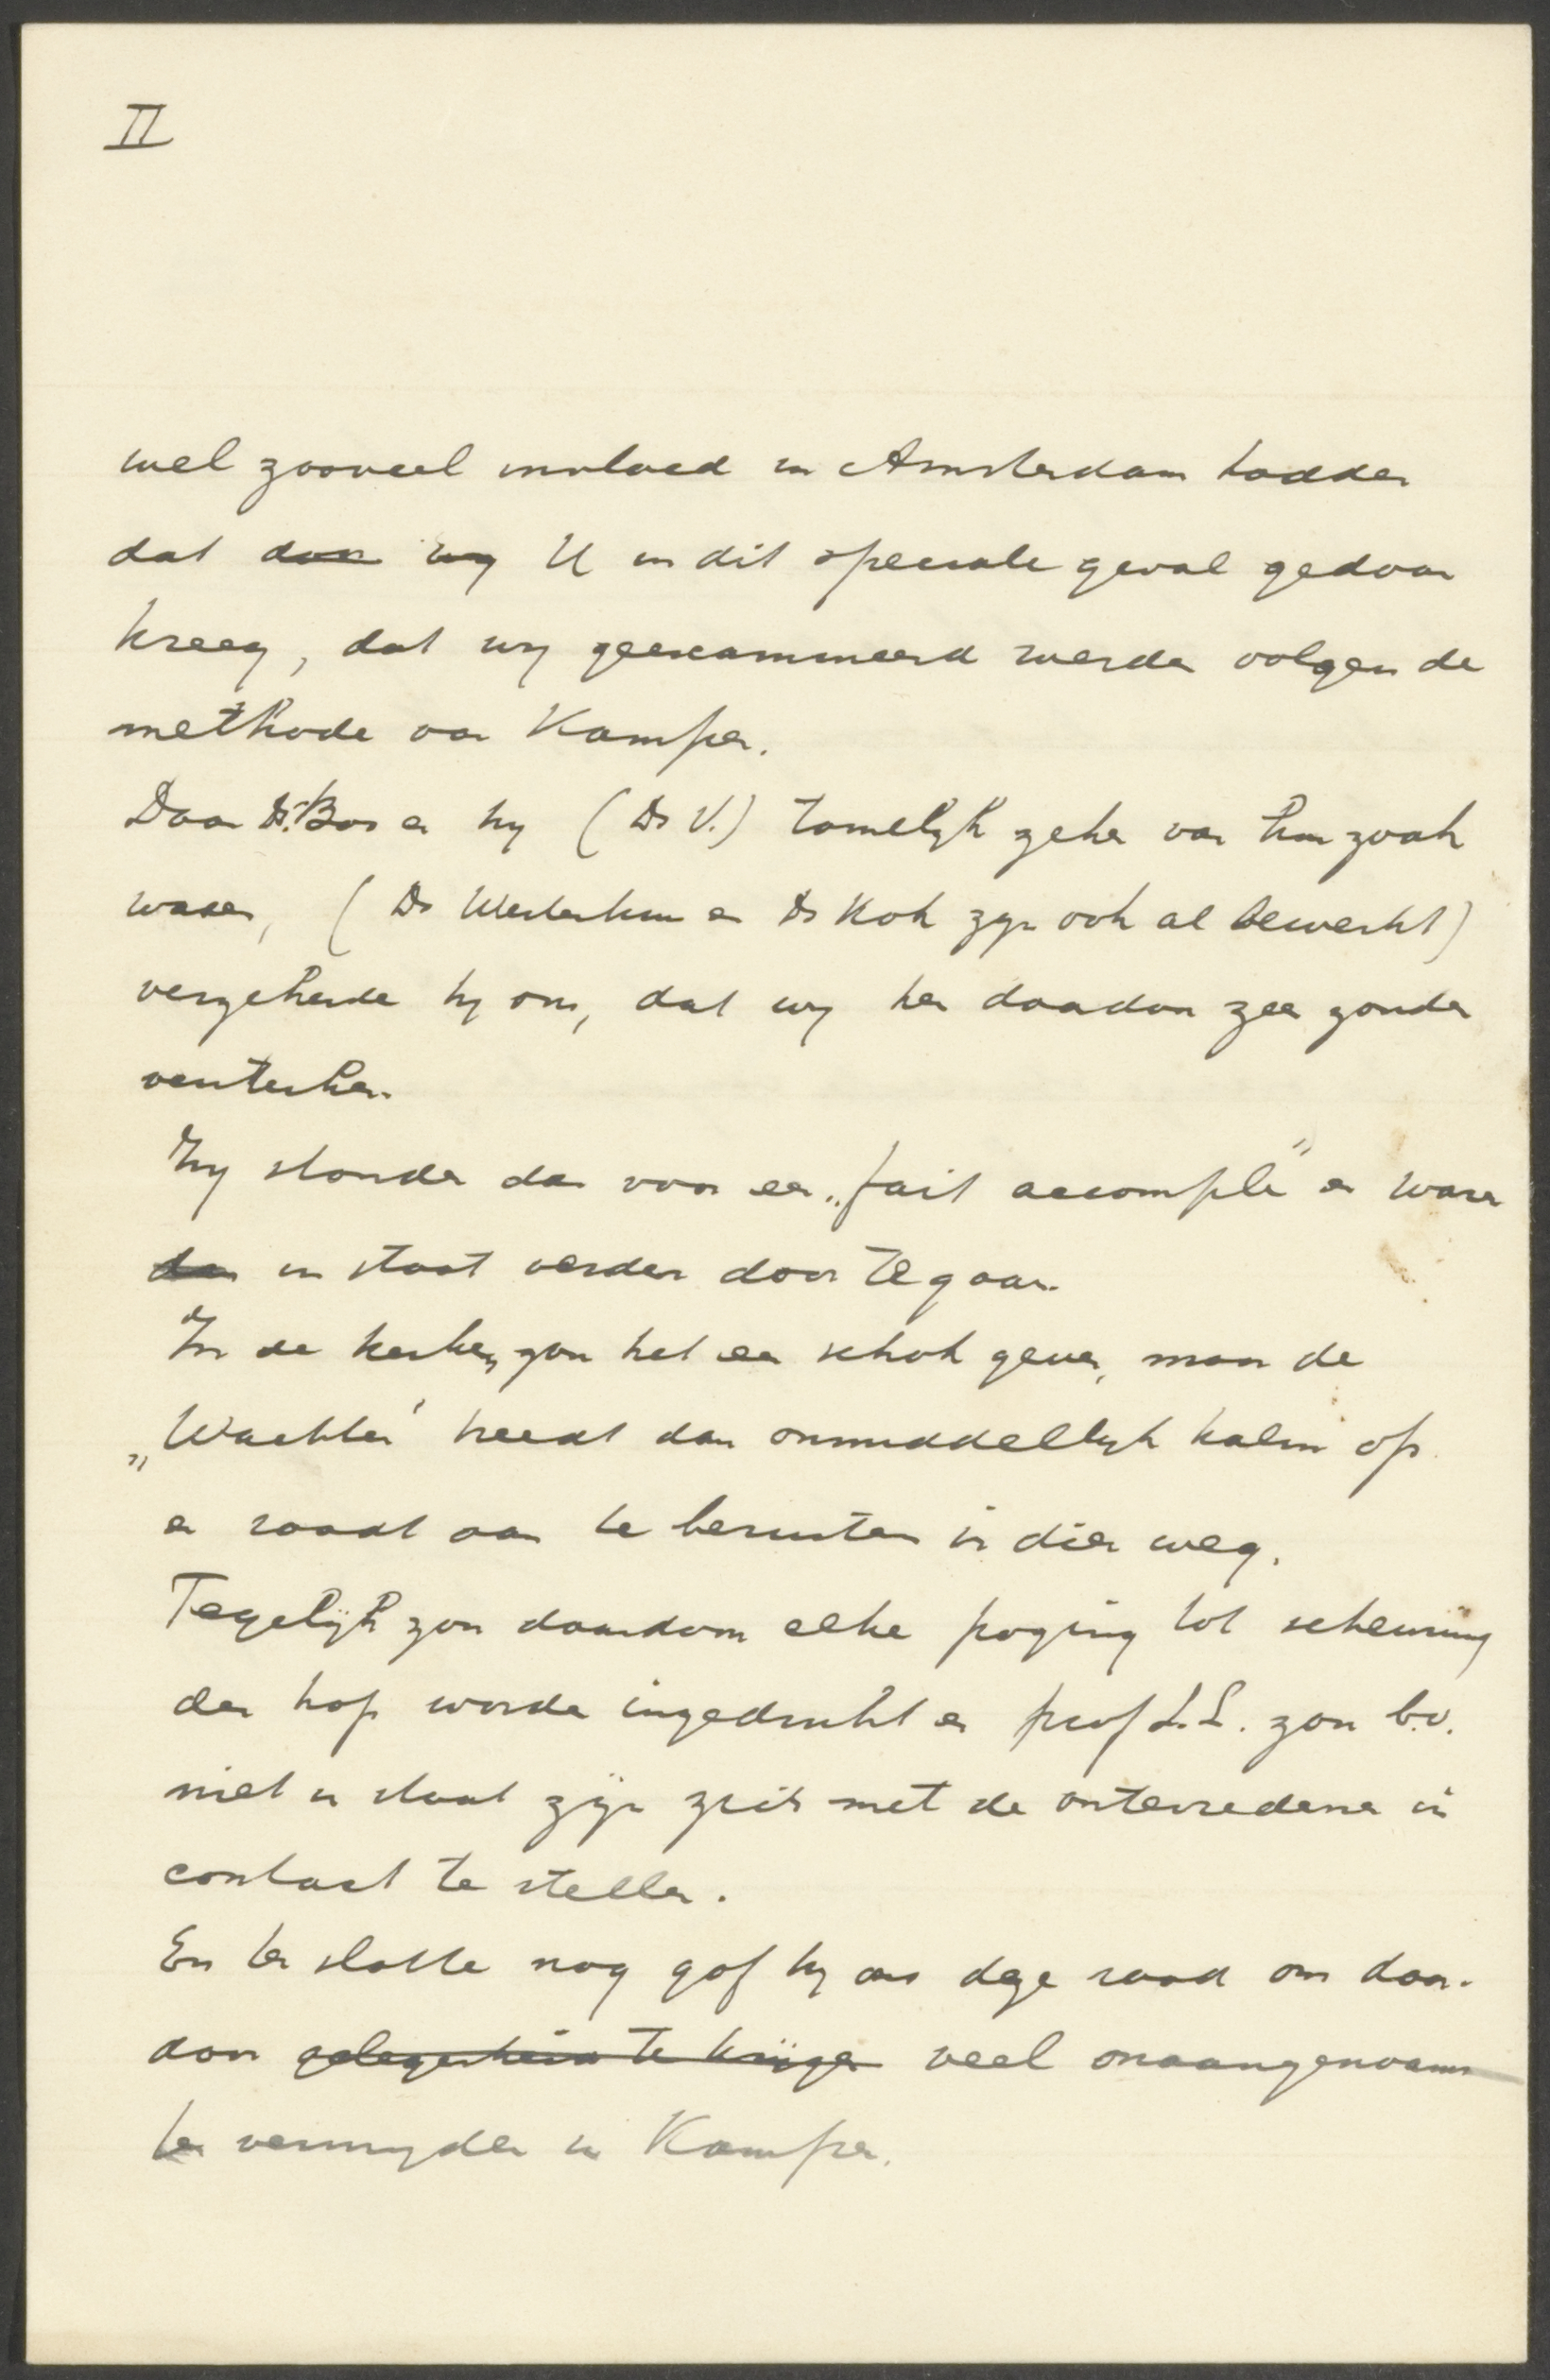 II
wel zooveel invloed in Amsterdam hadden
dat dan wij U in dit speciale geval gedaan
kreeg, dat wij geexammineerd werden volgens de
methode van Kampen.
Daar Ds. Bos en hij (Ds V.) tamelijk zeker van hun zaak
waren, (Ds Westerhuis en Ds Kok zijn ook al bewerkt)
verzekerde hij ons, dat wij hen daardoor zeer zouden
versterken
Zij stonden dan voor een „fait accompli" en waren
dan in staat verder door te gaan.
In de kerken zou het een schok geven, maar de
„Wachter" treedt dan onmiddellijk kalm op
en raadt aan te berusten in dien weg.
Tegelijk zou daardoor elke poging tot scheuring
den kop worden ingedrukt en prof L.L. zou b.v.
niet in staat zijn zich met de ontevredenen in
contact te stellen.
En ten slotte nog gaf hij ons deze raad om daar-
door gelegenheid te krijgen veel onaangenaams
te vermijden in Kampen.